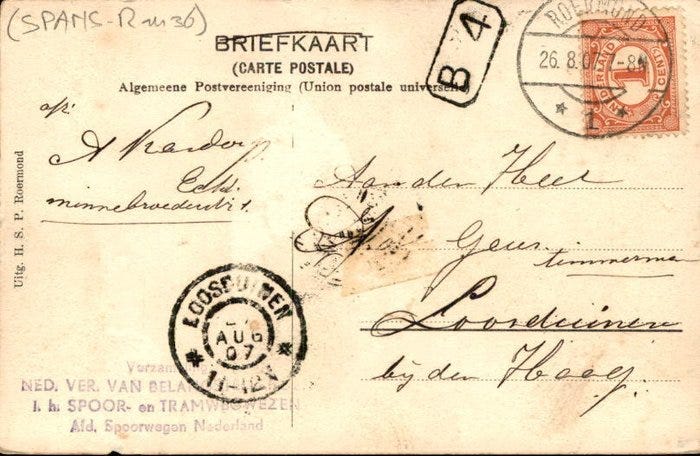 (SPANS-R m36)
BRIEFKAART
(CARTE POSTALE)
Algemeene Postvereeniging (Union postale universelle)
B 4
ROERMOND
26.8.07 7-8N
1
NEDERLAND
1
CENT
Uitg. H. S. P. Roermond
afz:
A
Minnebroederstr 1
Aan den Heer
Geur
timmerman
Loosduinen
bij den Haag
LOOSDUINEN
AUG
07
11-12V
Verzam
NED. VER. VAN BELA
I. h. SPOOR- en TRAMWEGWEZEN
Afd. Spoorwegen Nederland